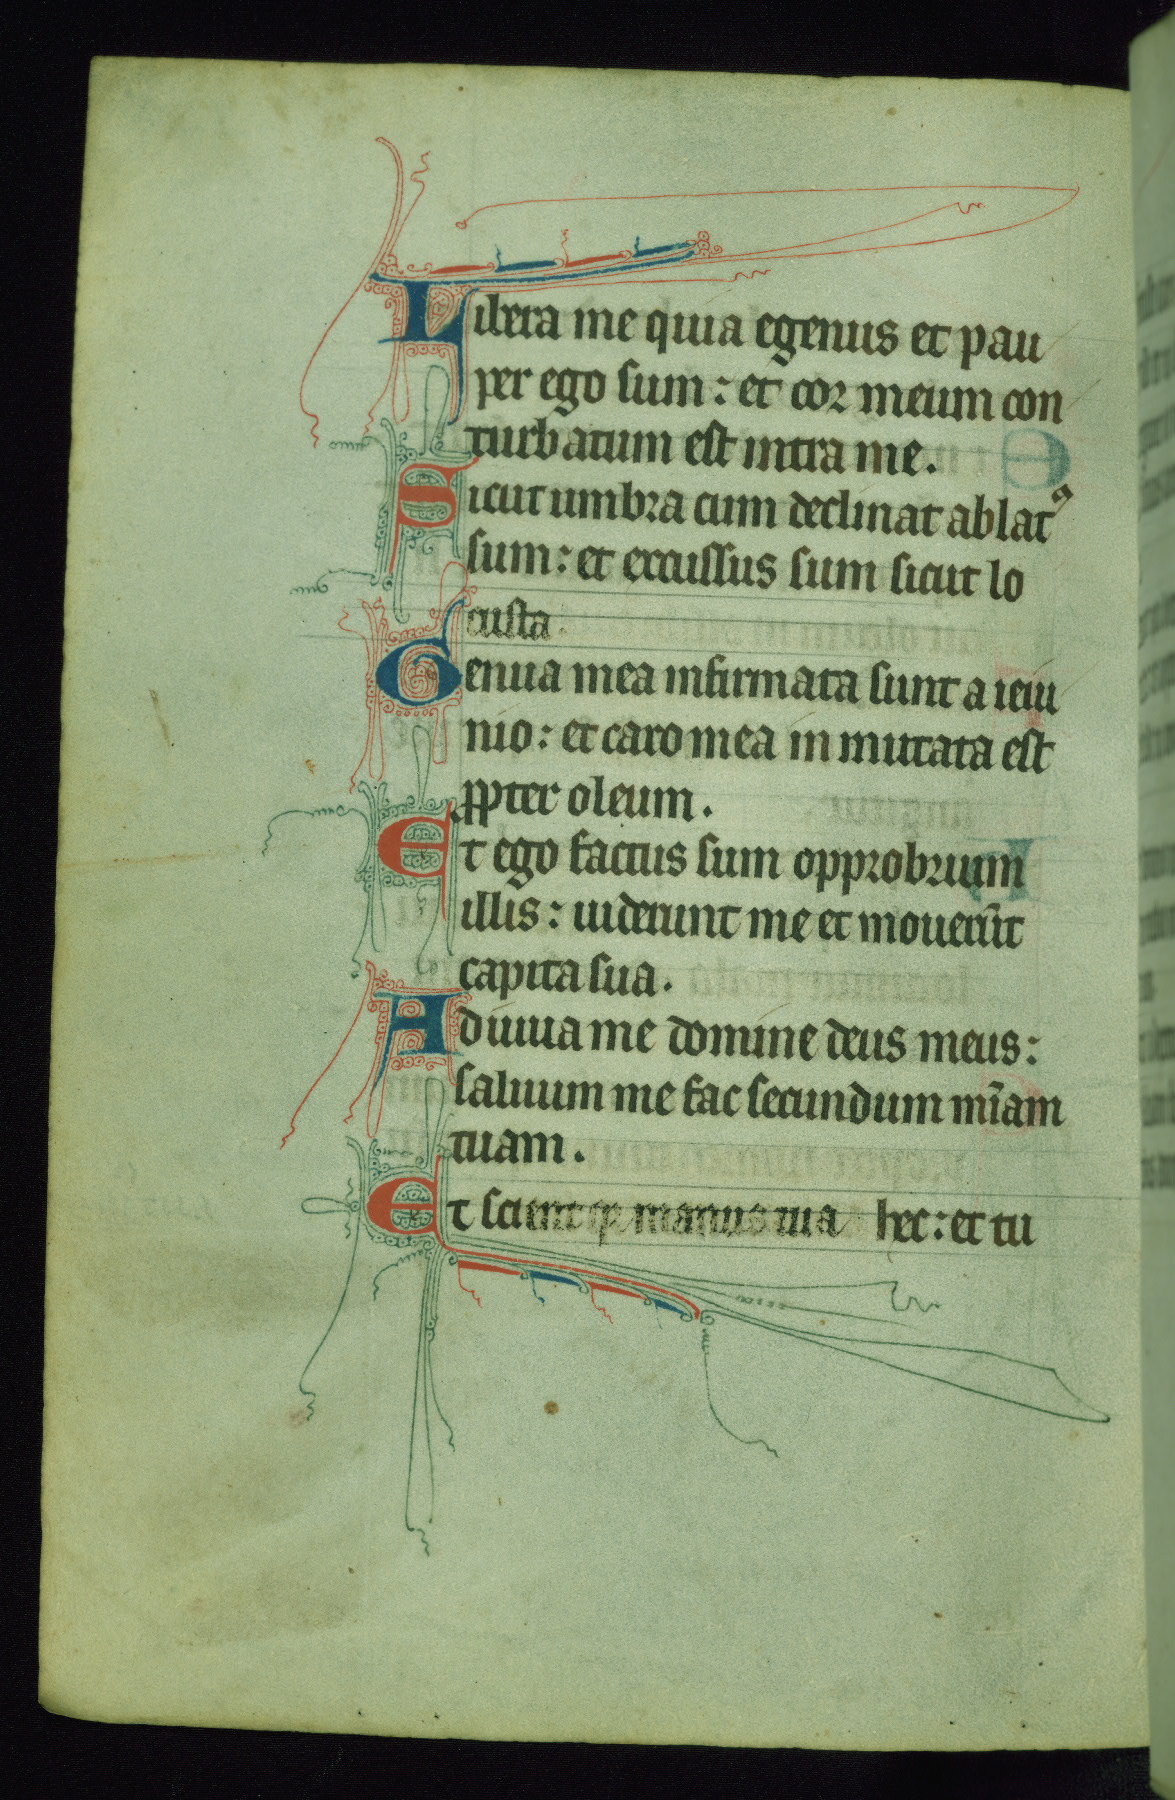 Libera me quia egenus et pau
per ego sum: et cor meum con
turbatum est intra me.
Sicut umbra cum declinat ablatꝰ
sum: et excussus sum sicut lo
custa.
Genua mea infirmata sunt a ieiu
nio: et caro mea in mutata est
ꝓpter oleum.
Et ego factus sum opprobrium
illis: uiderunt me et mouerūt
capita sua.
Adiuua me domine deus meus:
saluum me fac secundum mīam
tuam.
Et scient qꝫ manus tua hec: et tu